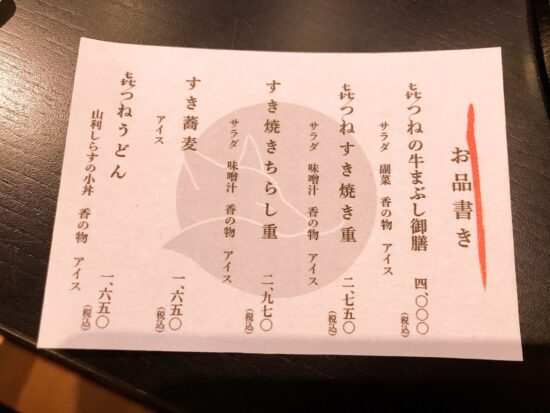 お品書き
㐂つねの牛まぶし御膳 四、〇〇〇(税込)
サラダ 副菜 香の物 アイス
㐂つねすき焼き重 二、七五〇(税込)
サラダ 味噌汁 香の物 アイス
すき焼きちらし重 二、九七〇(税込)
サラダ 味噌汁 香の物 アイス
すき蕎麦 一、六五〇(税込)
アイス
㐂つねうどん 一、六五〇(税込)
山利しらすの小丼 香の物 アイス